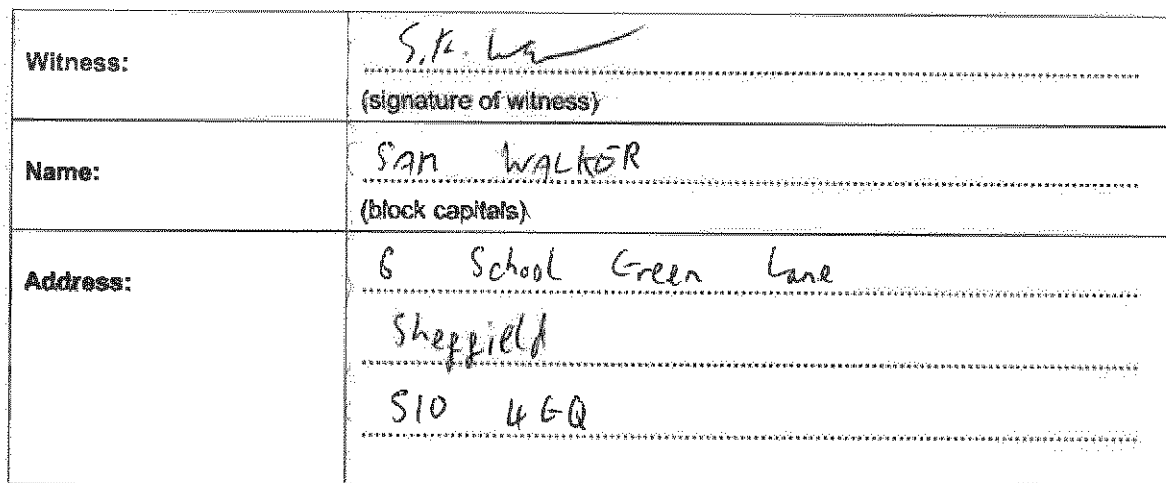 Witness:
(signature of witness)
Name:
SAM WALKER
(block capitals)
Address:
6 School Green Lane
Sheffield
S10 4GQ